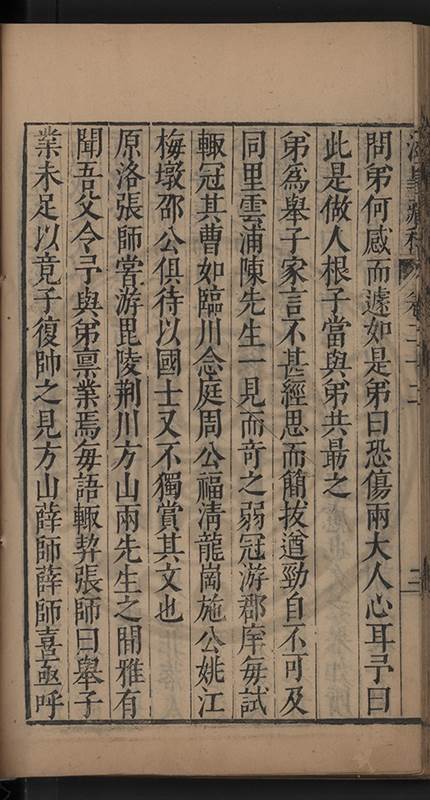 問弟何感而遽如是弟曰恐傷兩大人心耳予曰
此是做人根子當與弟共最之
弟為舉子家言不甚經思而簡拔遒勁自不可及
同里雲浦陳先生一見而奇之弱冠游郡庠每試
輙冠其曹如臨川念庭周公福清龍崗施公姚江
梅墩邵公俱待以國士又不獨賞其文也
原洛張師甞游毘陵荆川方山兩先生之閒雅有
聞吾父令予與弟禀業焉每語輙契張師曰舉子
業未足以竟子復帥之見方山薛師薛師喜亟呼